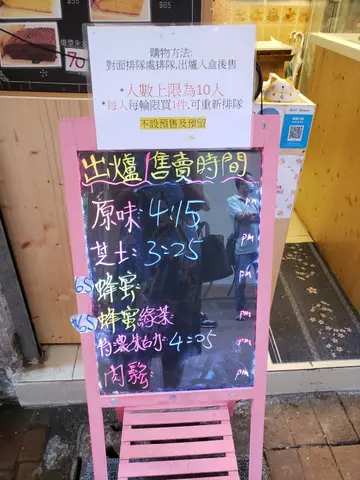 $65
購物方法:
對面排隊處排隊,出爐入盒後售
*人數上限為10人
*每人每輪限買1件,可重新排隊
不設預售及預留
出爐售賣時間
原味: 4:15 pm
芝士: 3:25 pm
65 蜂蜜:
65 蜂蜜綠茶: pm
特濃朱古力: 4:05 pm
肉鬆 pm